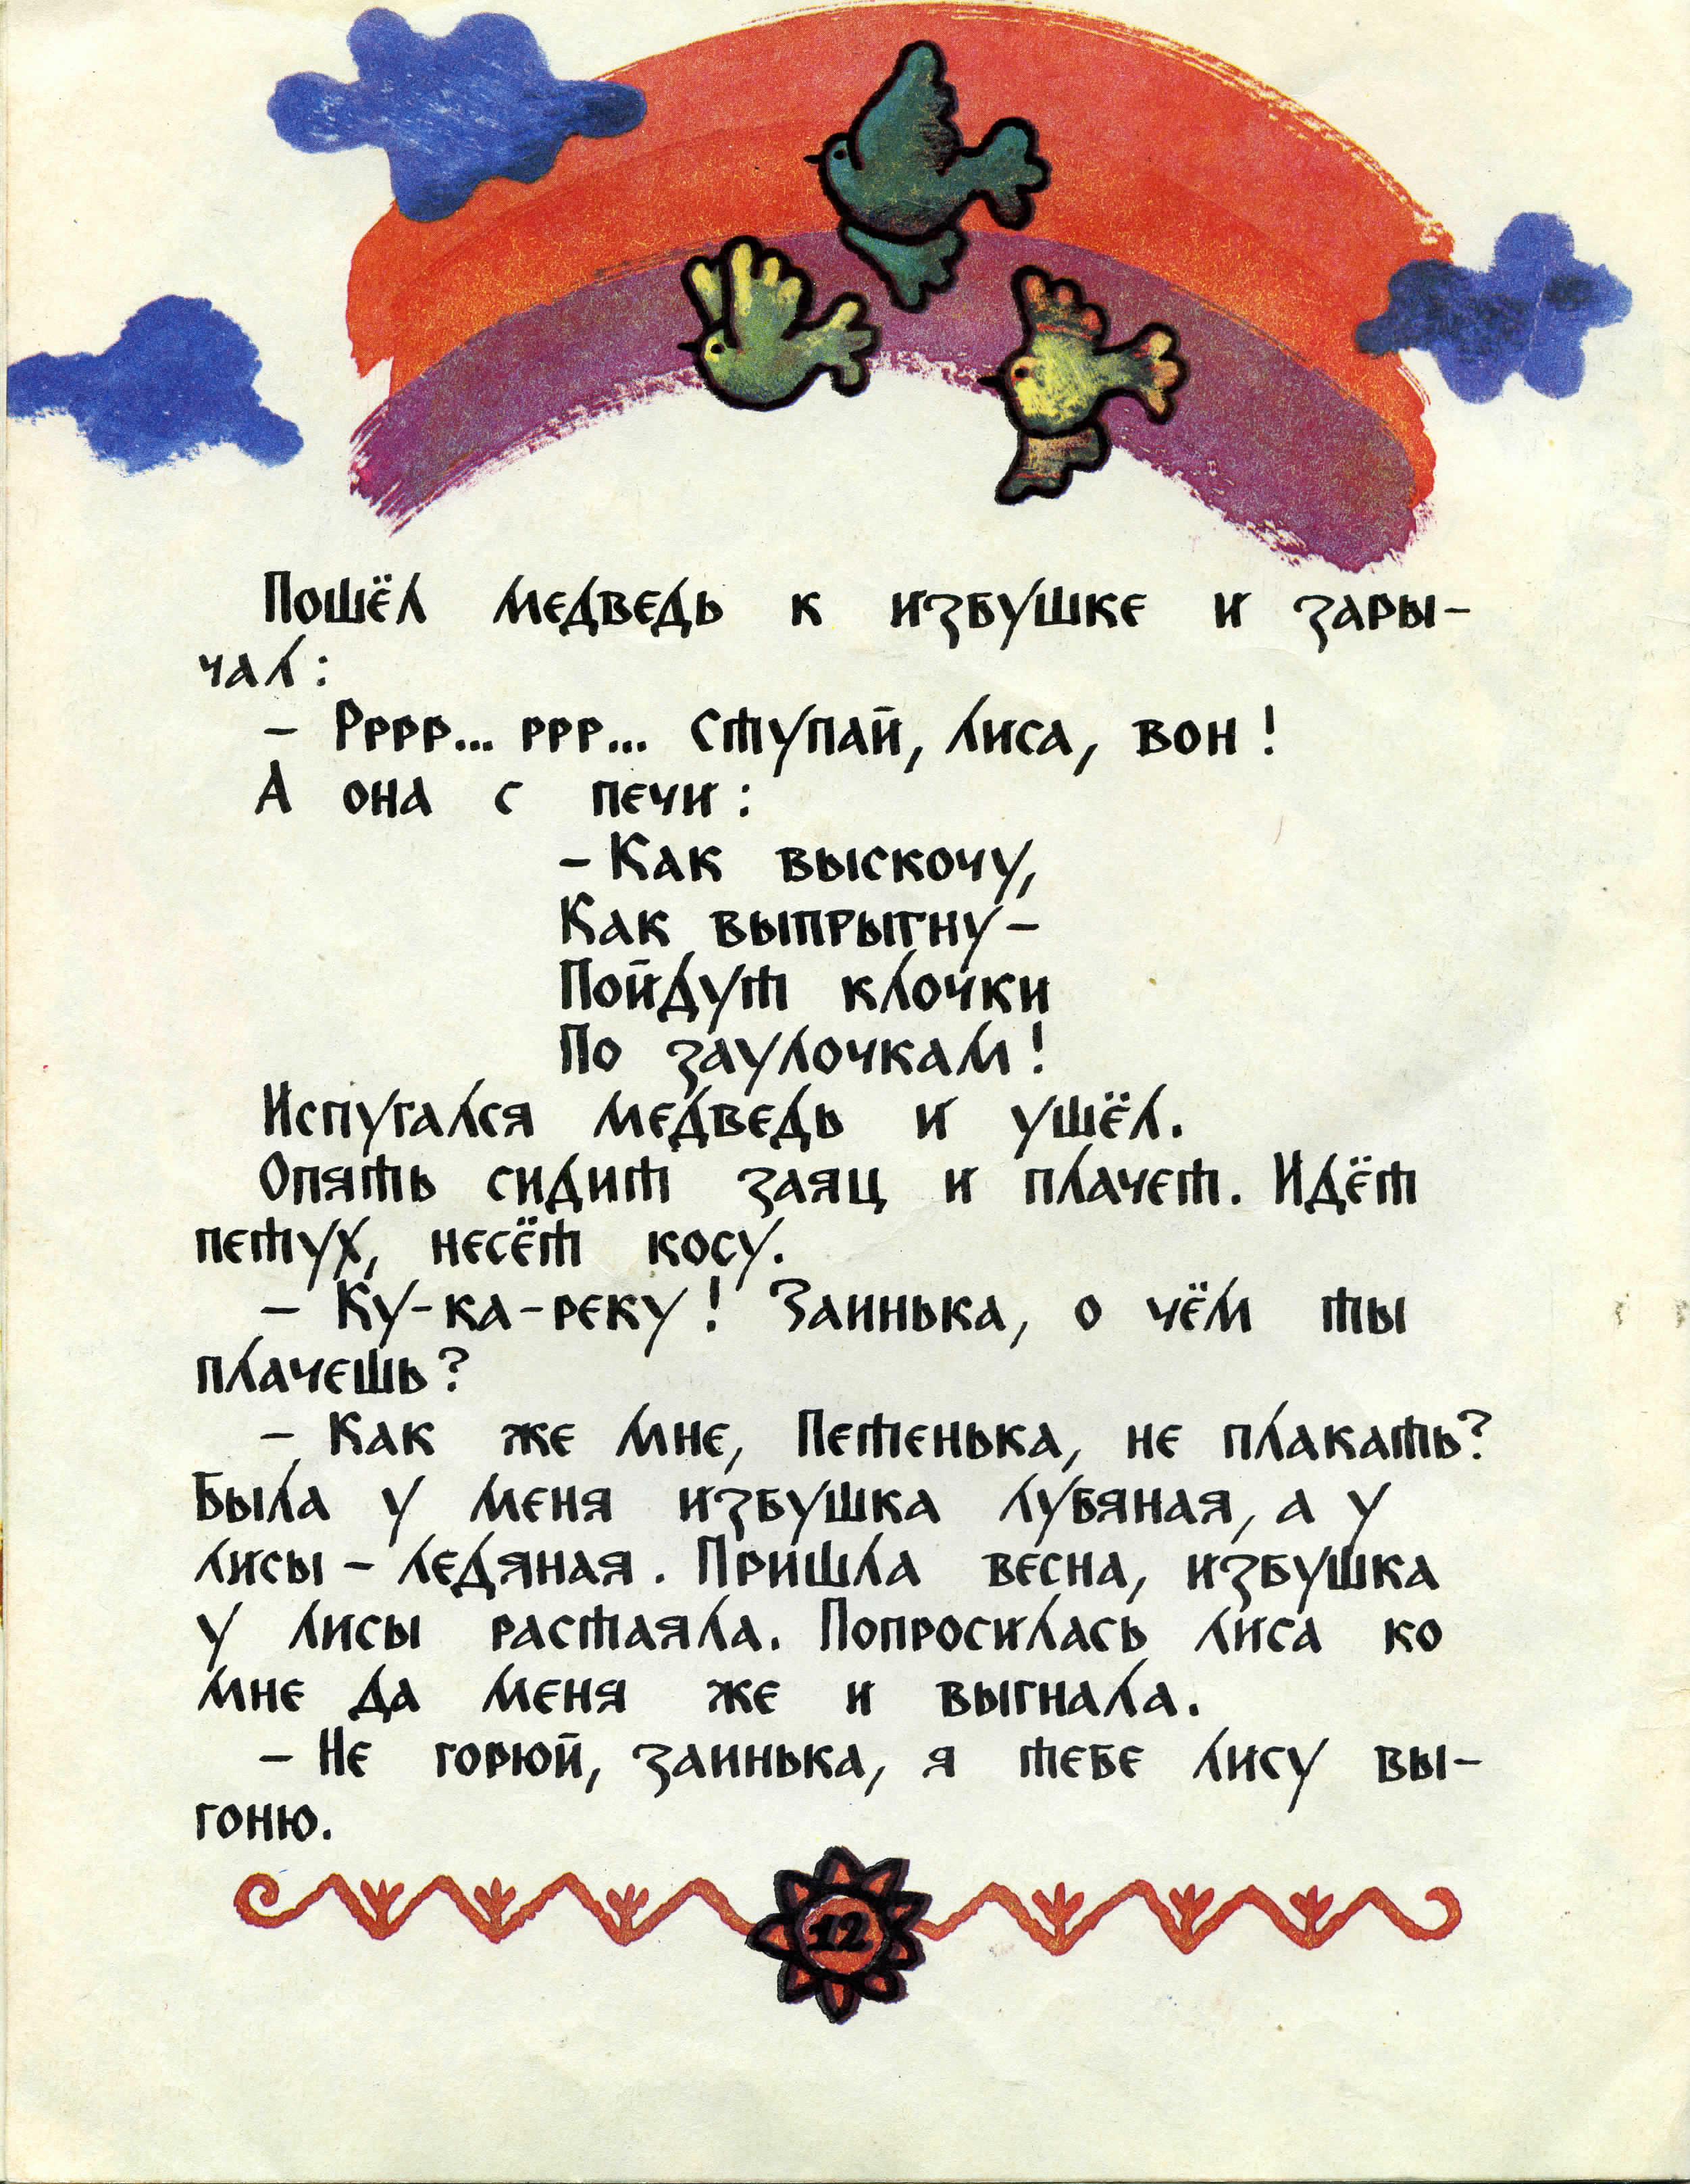 Пошёл медведь к избушке и зары-
чал:
– Рррр... ррр... Ступай, лиса, вон!
А она с печи:
– Как выскочу,
Как выпрыгну –
Пойдут клочки
По заулочкам!
Испугался медведь и ушёл.
Опять сидит заяц и плачет. Идёт
петух, несёт косу.
– Ку-ка-реку! Заинька, о чём ты
плачешь?
– Как же мне, Петенька, не плакать?
Была у меня избушка лубяная, а у
лисы – ледяная. Пришла весна, избушка
у лисы растаяла. Попросилась лиса ко
мне да меня же и выгнала.
– Не горюй, заинька, я тебе лису вы-
гоню.
12